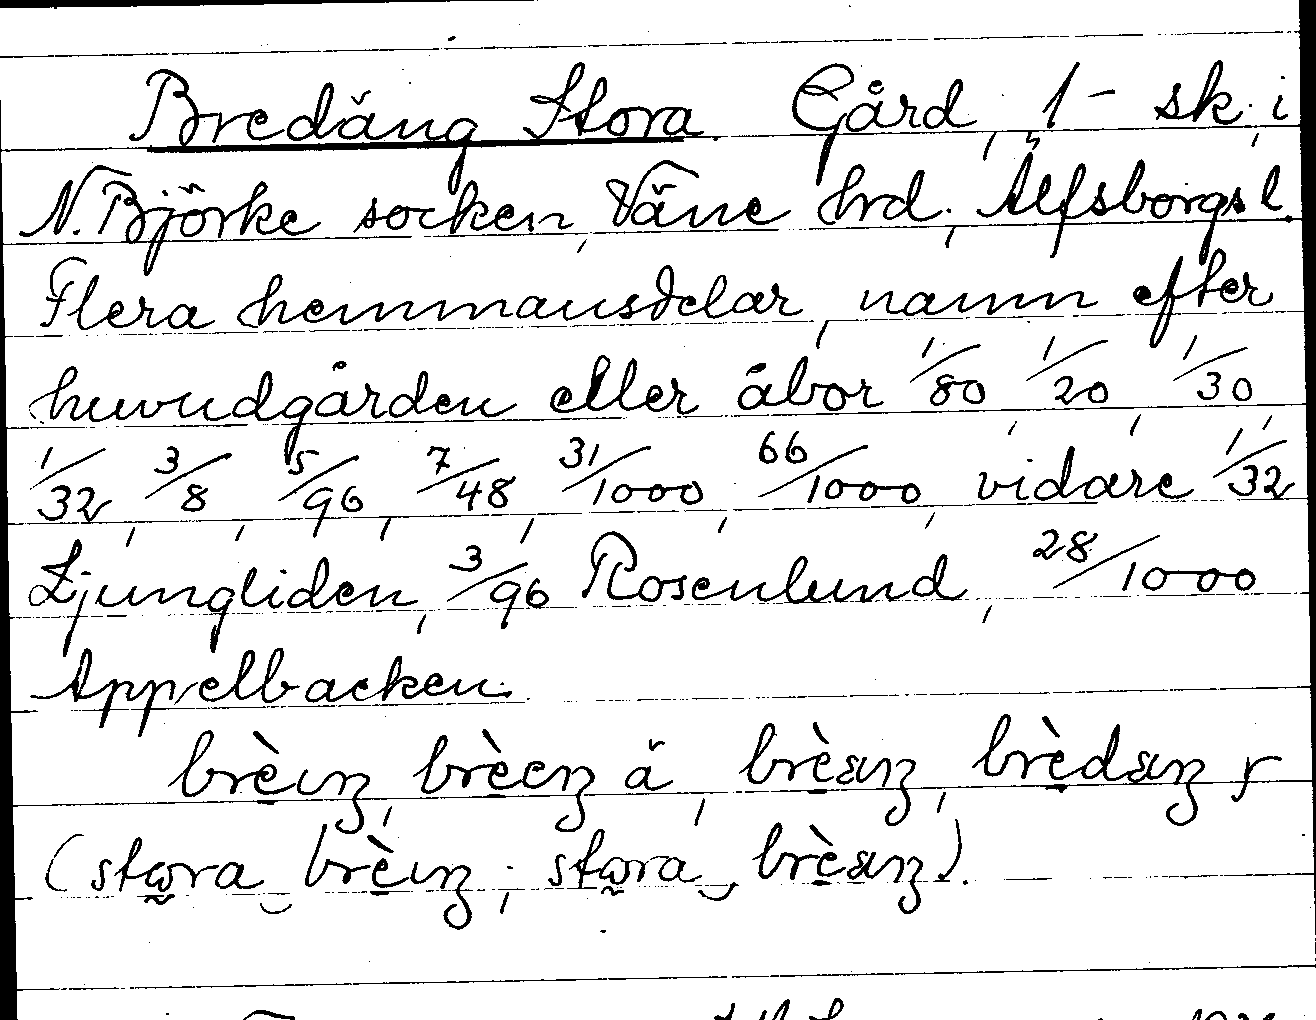 Bredäng Stora. Gård, 1- sk, i
N. Björke socken, Väne hrd., Älfsborgs l.
Flera hemmansdelar, namn efter
huvudgården eller åbor 1/80, 1/20, 1/30,
1/32, 3/8, 5/96, 7/48, 31/1000, 66/1000, vidare 1/32
Ljungliden, 3/96 Rosenlund, 28/1000
Appelbacken.
brèıŋ, brèeŋ ä, brèäŋ, brèdäŋ y
(stωra‿brèıŋ; stωra‿brèäŋ).